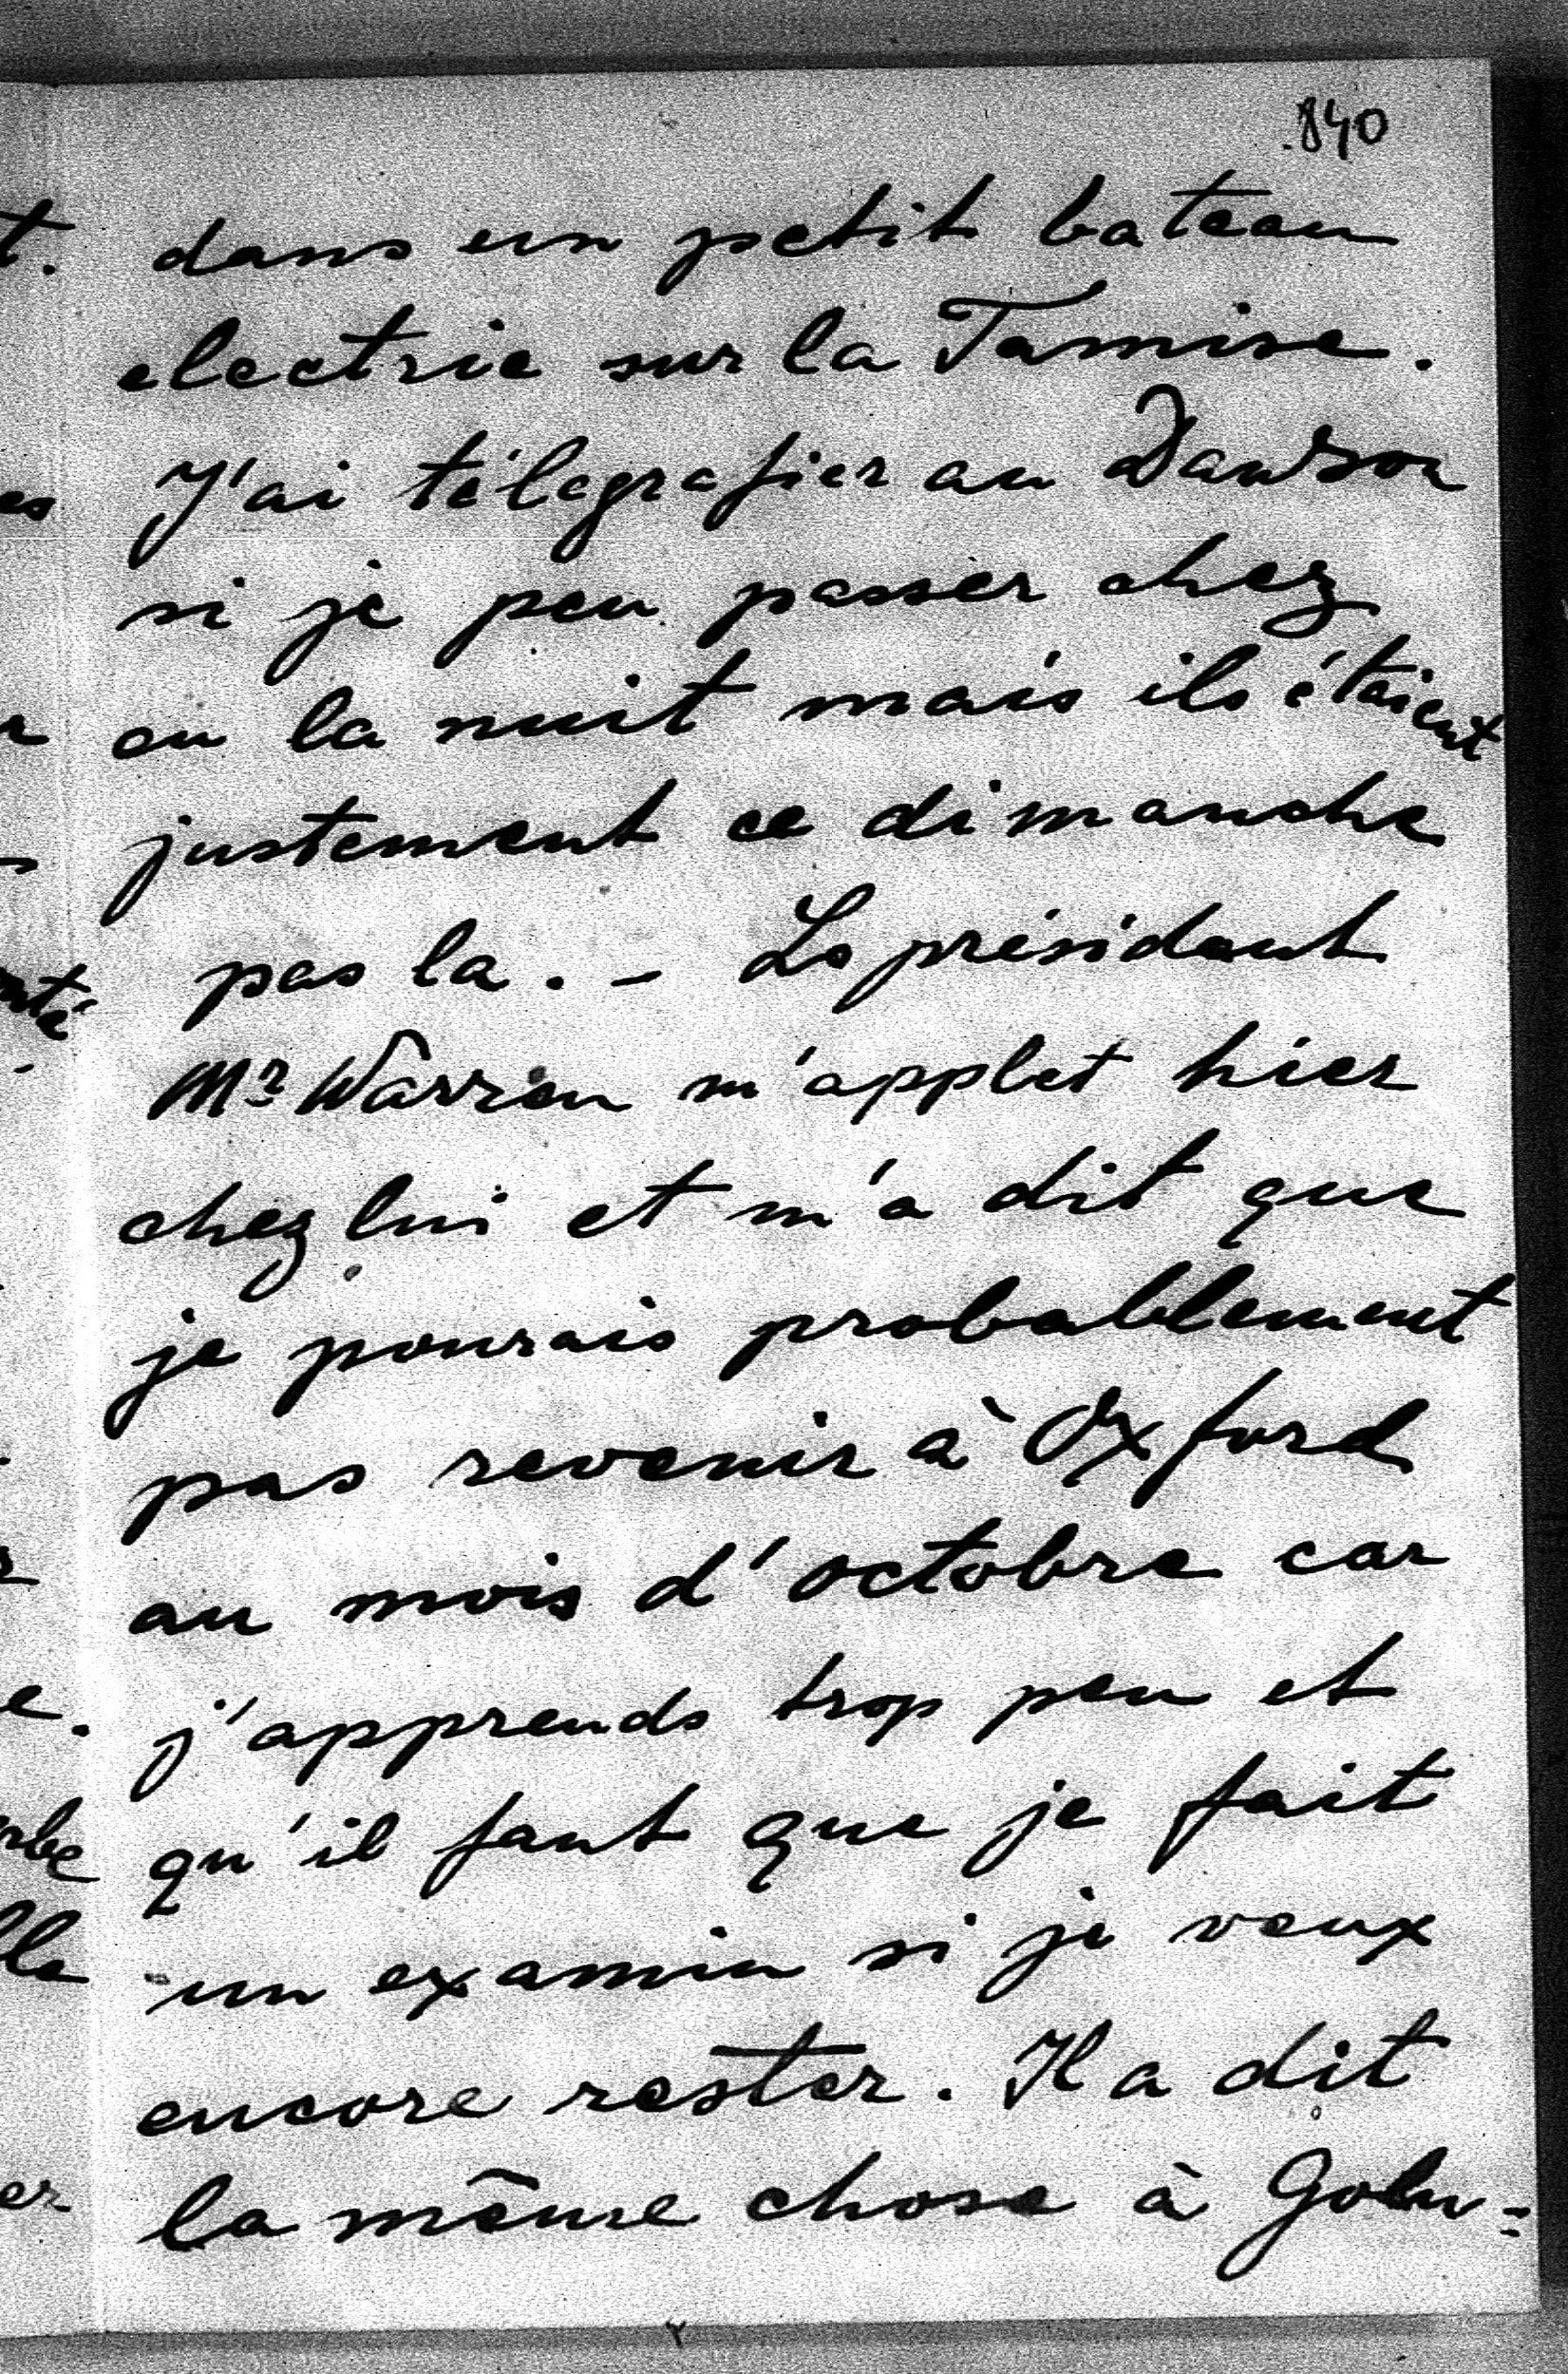 840
dans un petit bateau
electrie sur la Tamise.
J'ai télegrafier au Dawson
si je peu passer chez
ou la nuit mais ils étaient
justement ce dimanche
pas la. – Le président
Mr Warren m'applet hier
chez lui et m'a dit que
je pourais probablement
pas revenir à Oxford
au mois d'octobre car
j'apprends trop peu et
qu'il faut que je fait
un examin si je veux
encore rester. Il a dit
la même chose à Golu=